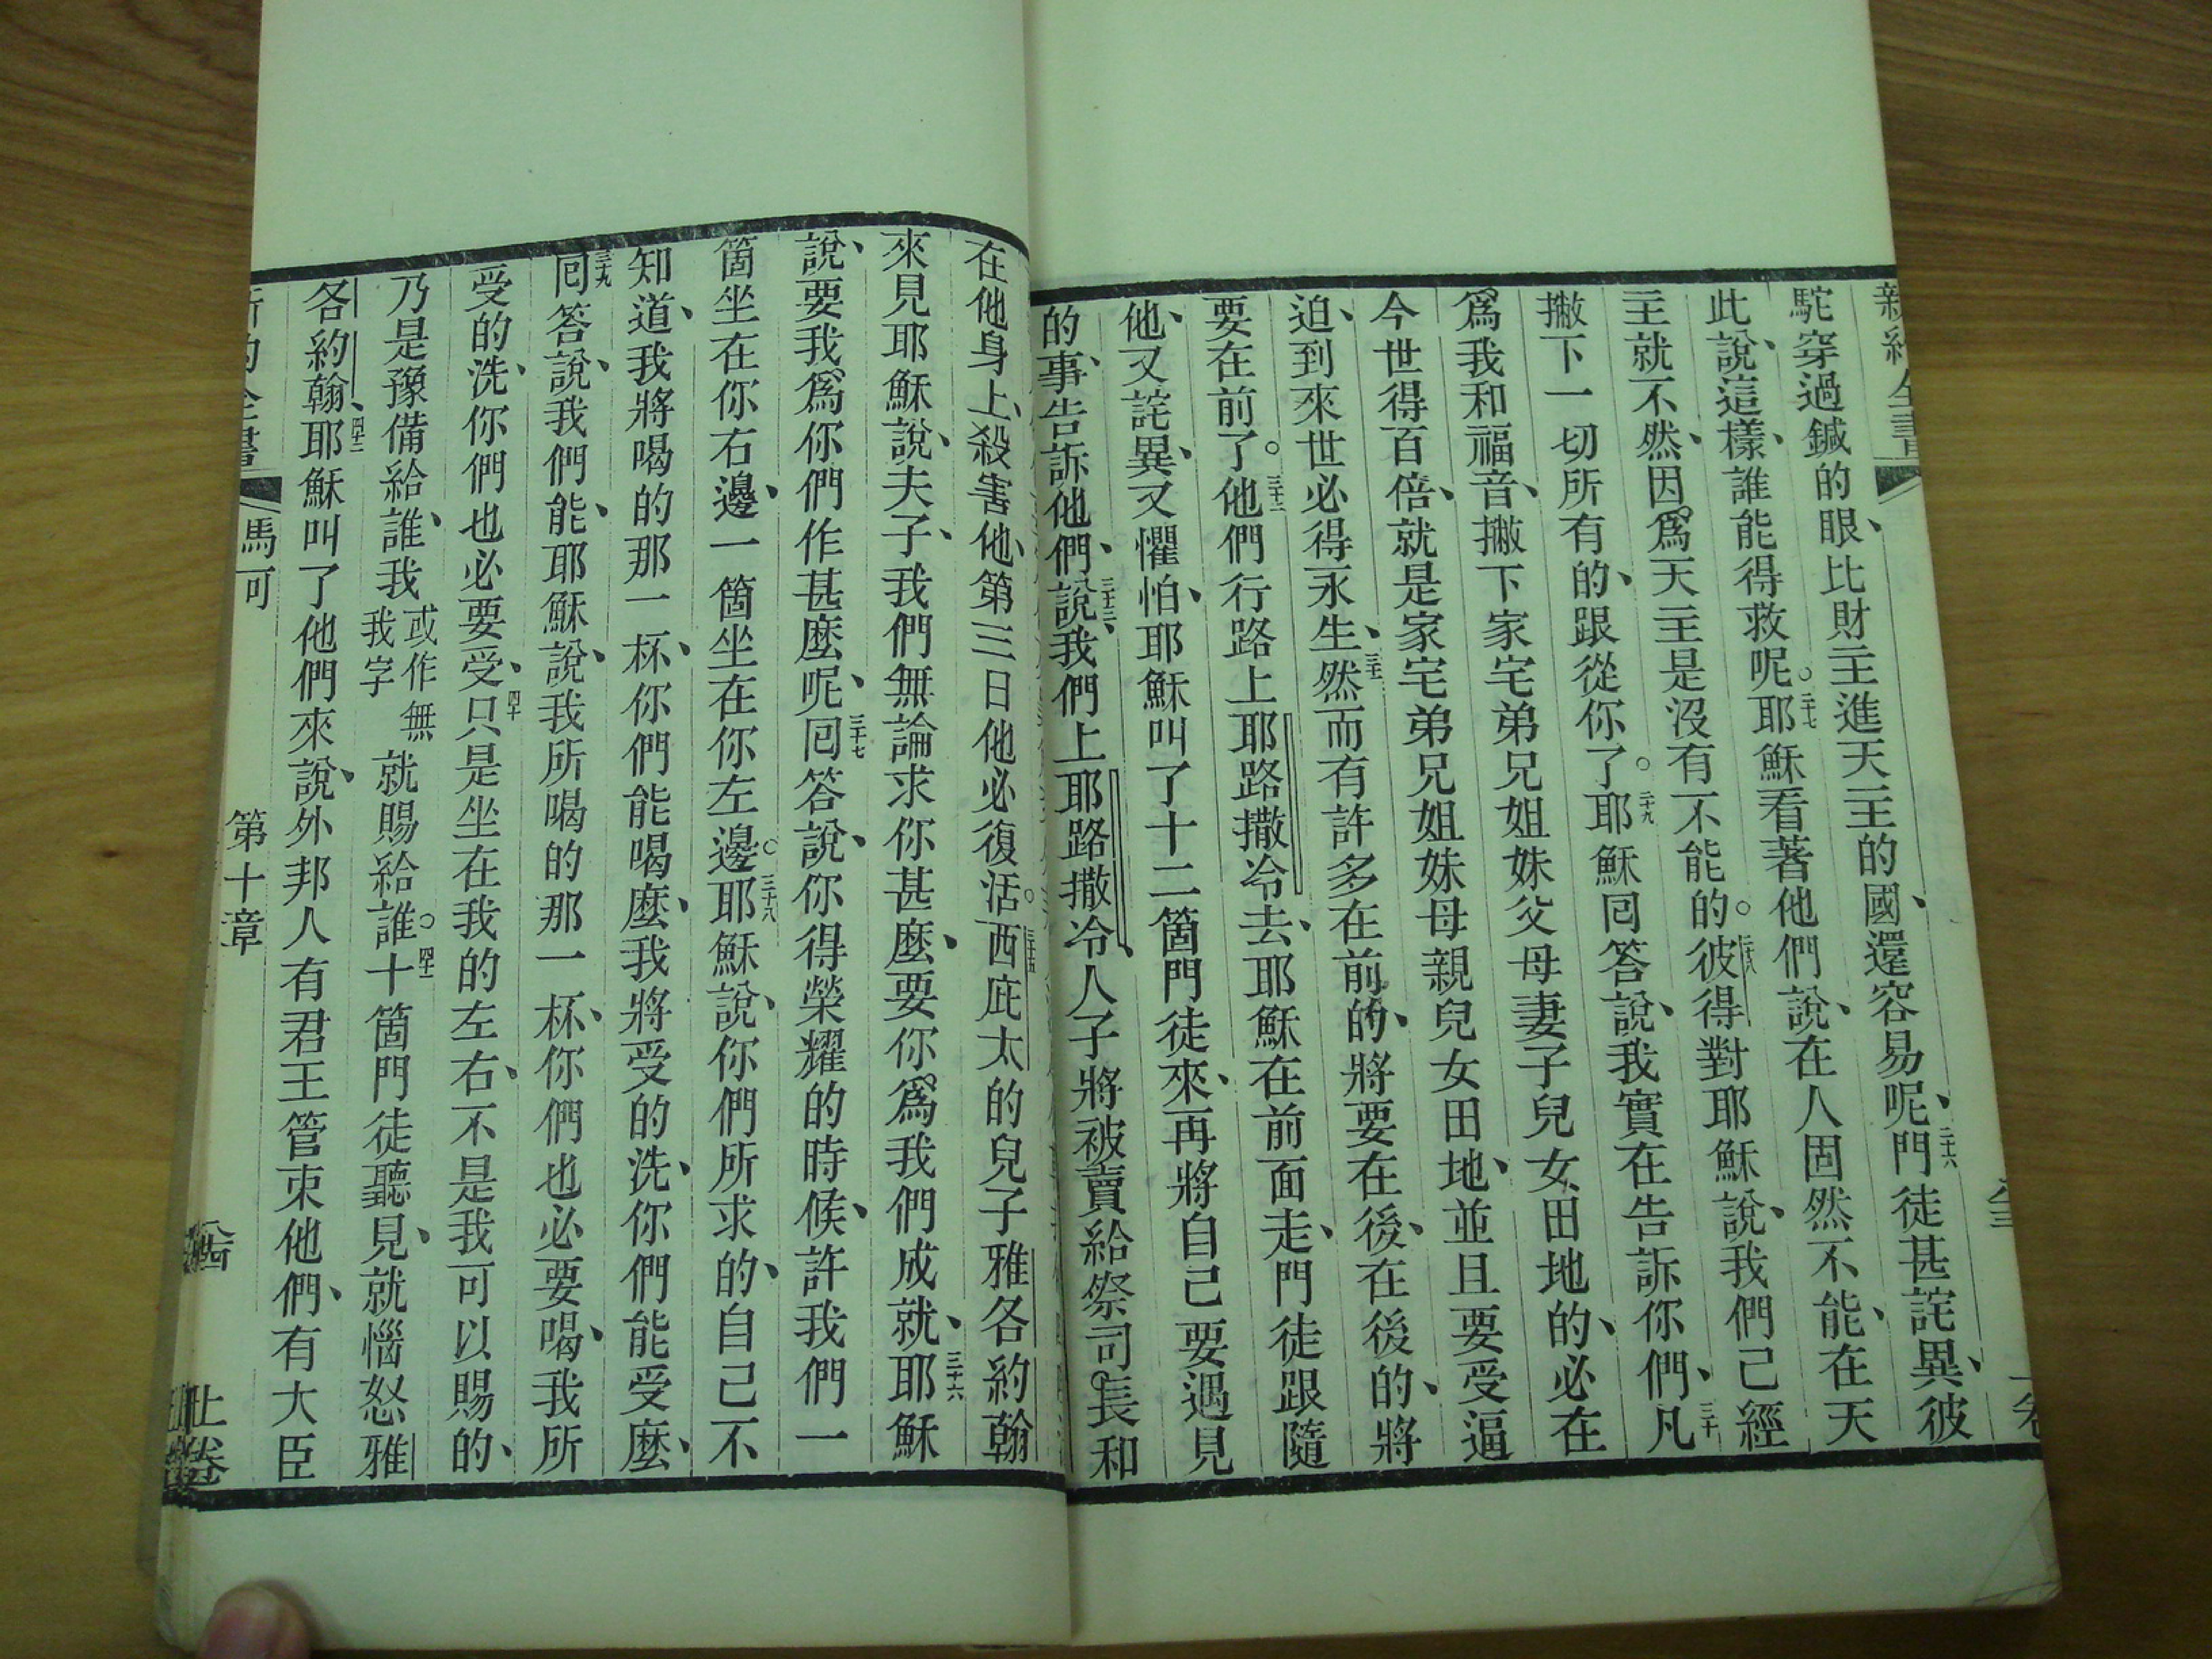 新約全書
駝穿過鍼的眼、比財主進天主的國、還容易呢、二十六門徒甚詫異、彼
此說、這樣、誰能得救呢。二十七耶穌看著他們說、在人固然不能、在天
主就不然、因爲天主是沒有不能的。二十八彼得對耶穌說、我們已經
撇下一切所有的、跟從你了。二十九耶穌囘答說、我實在告訴你們、三十凡
爲我和福音、撇下家宅弟兄姐妹父母妻子兒女、田地的、必在
今世得百倍、就是家宅弟兄姐妹母親兒女田地、並且要受逼
迫、到來世必得永生、三十一然而有許多在前的、將要在後、在後的、將
要在前了。三十二他們行路上耶路撒冷去、耶穌在前面走、門徒跟隨
他、又詫異、又懼怕、耶穌叫了十二箇門徒來、再將自己要遇見
的事、告訴他們、三十三說、我們上耶路撒冷、人子將被賣給祭司長和
在他身上、殺害他、第三日他必復活。三十五西庇太的兒子雅各約翰
來見耶穌說、夫子、我們無論求你甚麼、要你爲我們成就、三十六耶穌
說、要我爲你們作甚麼呢、三十七囘答說、你得榮耀的時候、許我們一
箇坐在你右邊、一箇坐在你左邊。三十八耶穌說、你們所求的、自己不
知道、我將喝的那一杯、你們能喝麼、我將受的洗、你們能受麼、
三十九囘答說、我們能、耶穌說、我所喝的那一杯、你們也必要喝、我所
受的洗、你們也必要受、四十只是坐在我的左右、不是我可以賜的、
乃是豫備給誰、我或作無我字就賜給誰。四十一十箇門徒聽見、就惱怒雅
各約翰、四十二耶穌叫了他們來說、外邦人有君王管束他們、有大臣
新約全書 馬可 第十章 上卷